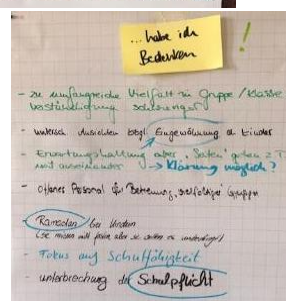 ... habe ich
Bedenken
!
- zu umfangreiche Vielfalt in Gruppe / Klasse
Verständigung schwieriger
- untersch. Ansichten bzgl. Eingewöhnung d. Kinder
- Erwartungshaltung aber „Seiten" gehen z.T.
weit auseinander → Klärung möglich?
- offenes Personal für Betreuung vielfältiger Gruppen
- Ramadan bei Kindern
- Fokus auf Schulfähigkeit
- unterbrechung der Schulpflicht